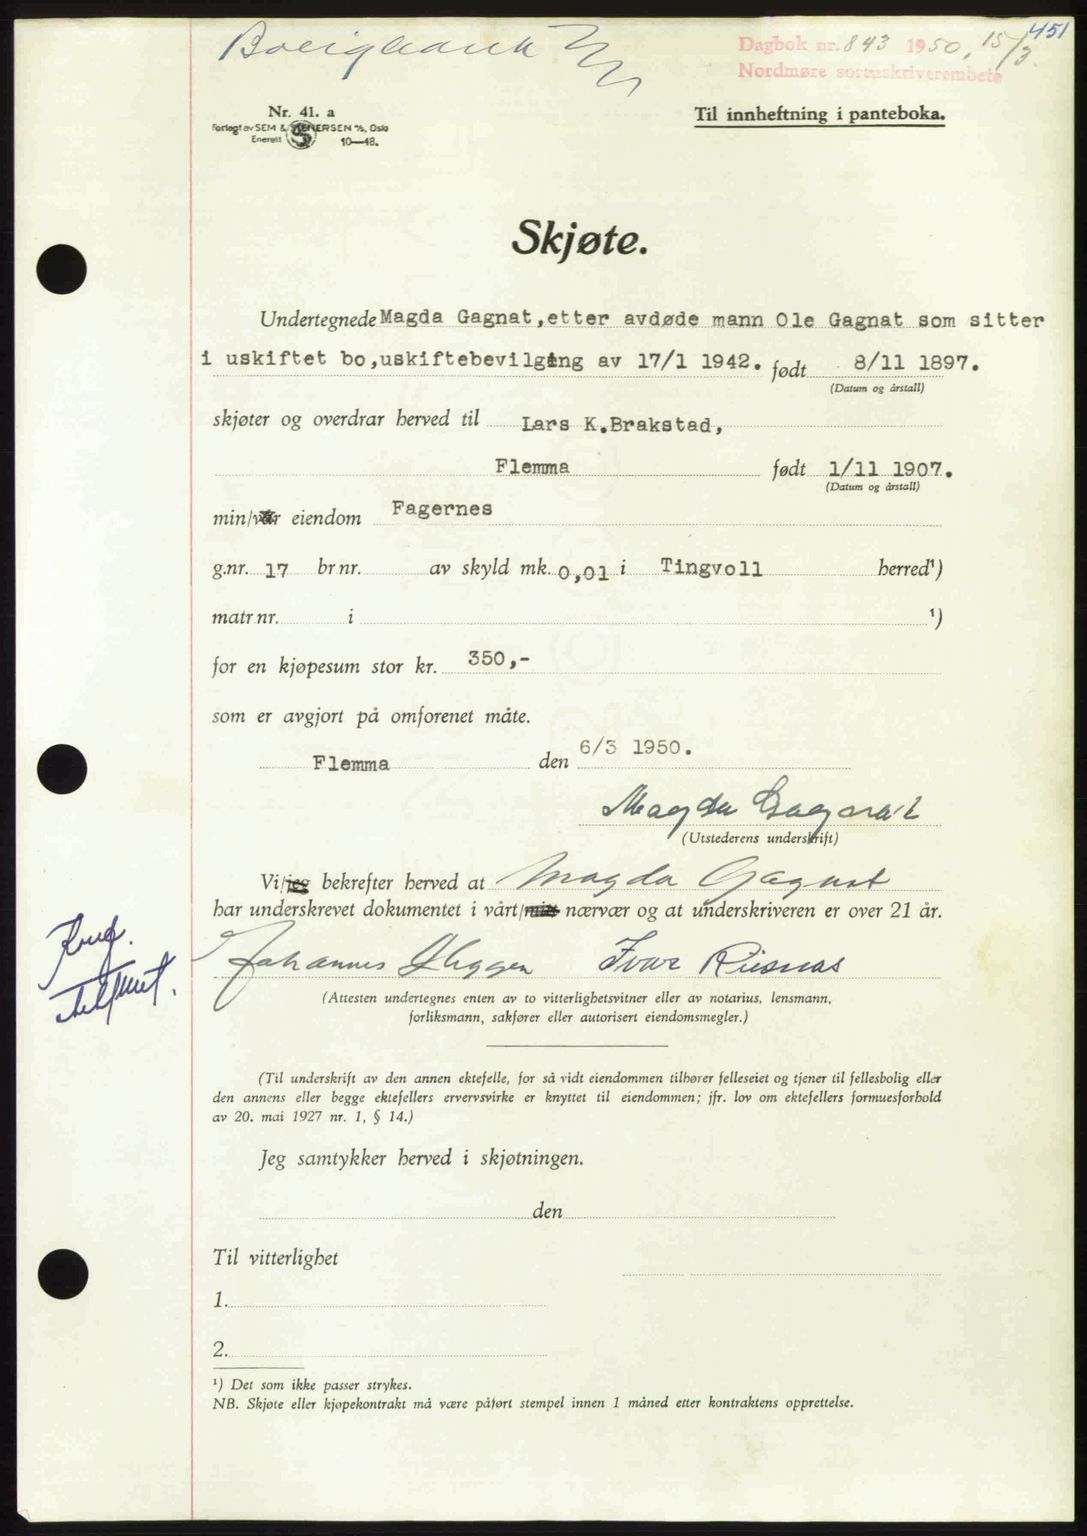 451
Dagbok nr. 843 1950, 15/3.
Nordmøre sorenskriverembete
Nr. 41. a
Forlagt av SEM & STENERSEN A/S, Oslo
Enerett 10—48.
Til innheftning i panteboka.
Skjøte.
Undertegnede Magda Gagnat, etter avdøde mann Ole Gagnat som sitter
i uskiftet bo, uskiftebevilging av 17/1 1942. født 8/11 1897.
(Datum og årstall)
skjøter og overdrar herved til Lars K.Brakstad,
Flemma født 1/11 1907.
(Datum og årstall)
min/vår eiendom Fagernes
g.nr. 17 br nr. av skyld mk. 0,01 i Tingvoll herred¹)
matr.nr. i ¹)
for en kjøpesum stor kr. 350,-
som er avgjort på omforenet måte.
Flemma den 6/3 1950.
Magda Gagnat
(Utstederens underskrift)
Vi/jeg bekrefter herved at Magda Gagnat
har underskrevet dokumentet i vårt/mitt nærvær og at underskriveren er over 21 år.
Johannes Ivar
(Attesten undertegnes enten av to vitterlighetsvitner eller av notarius, lensmann,
forliksmann, sakfører eller autorisert eiendomsmegler.)
(Til underskrift av den annen ektefelle, for så vidt eiendommen tilhører felleseiet og tjener til fellesbolig eller
den annens eller begge ektefellers ervervsvirke er knyttet til eiendommen; jfr. lov om ektefellers formuesforhold
av 20. mai 1927 nr. 1, § 14.)
Jeg samtykker herved i skjøtningen.
den
Til vitterlighet
1.
2.
¹) Det som ikke passer strykes.
NB. Skjøte eller kjøpekontrakt må være påført stempel innen 1 måned etter kontraktens opprettelse.